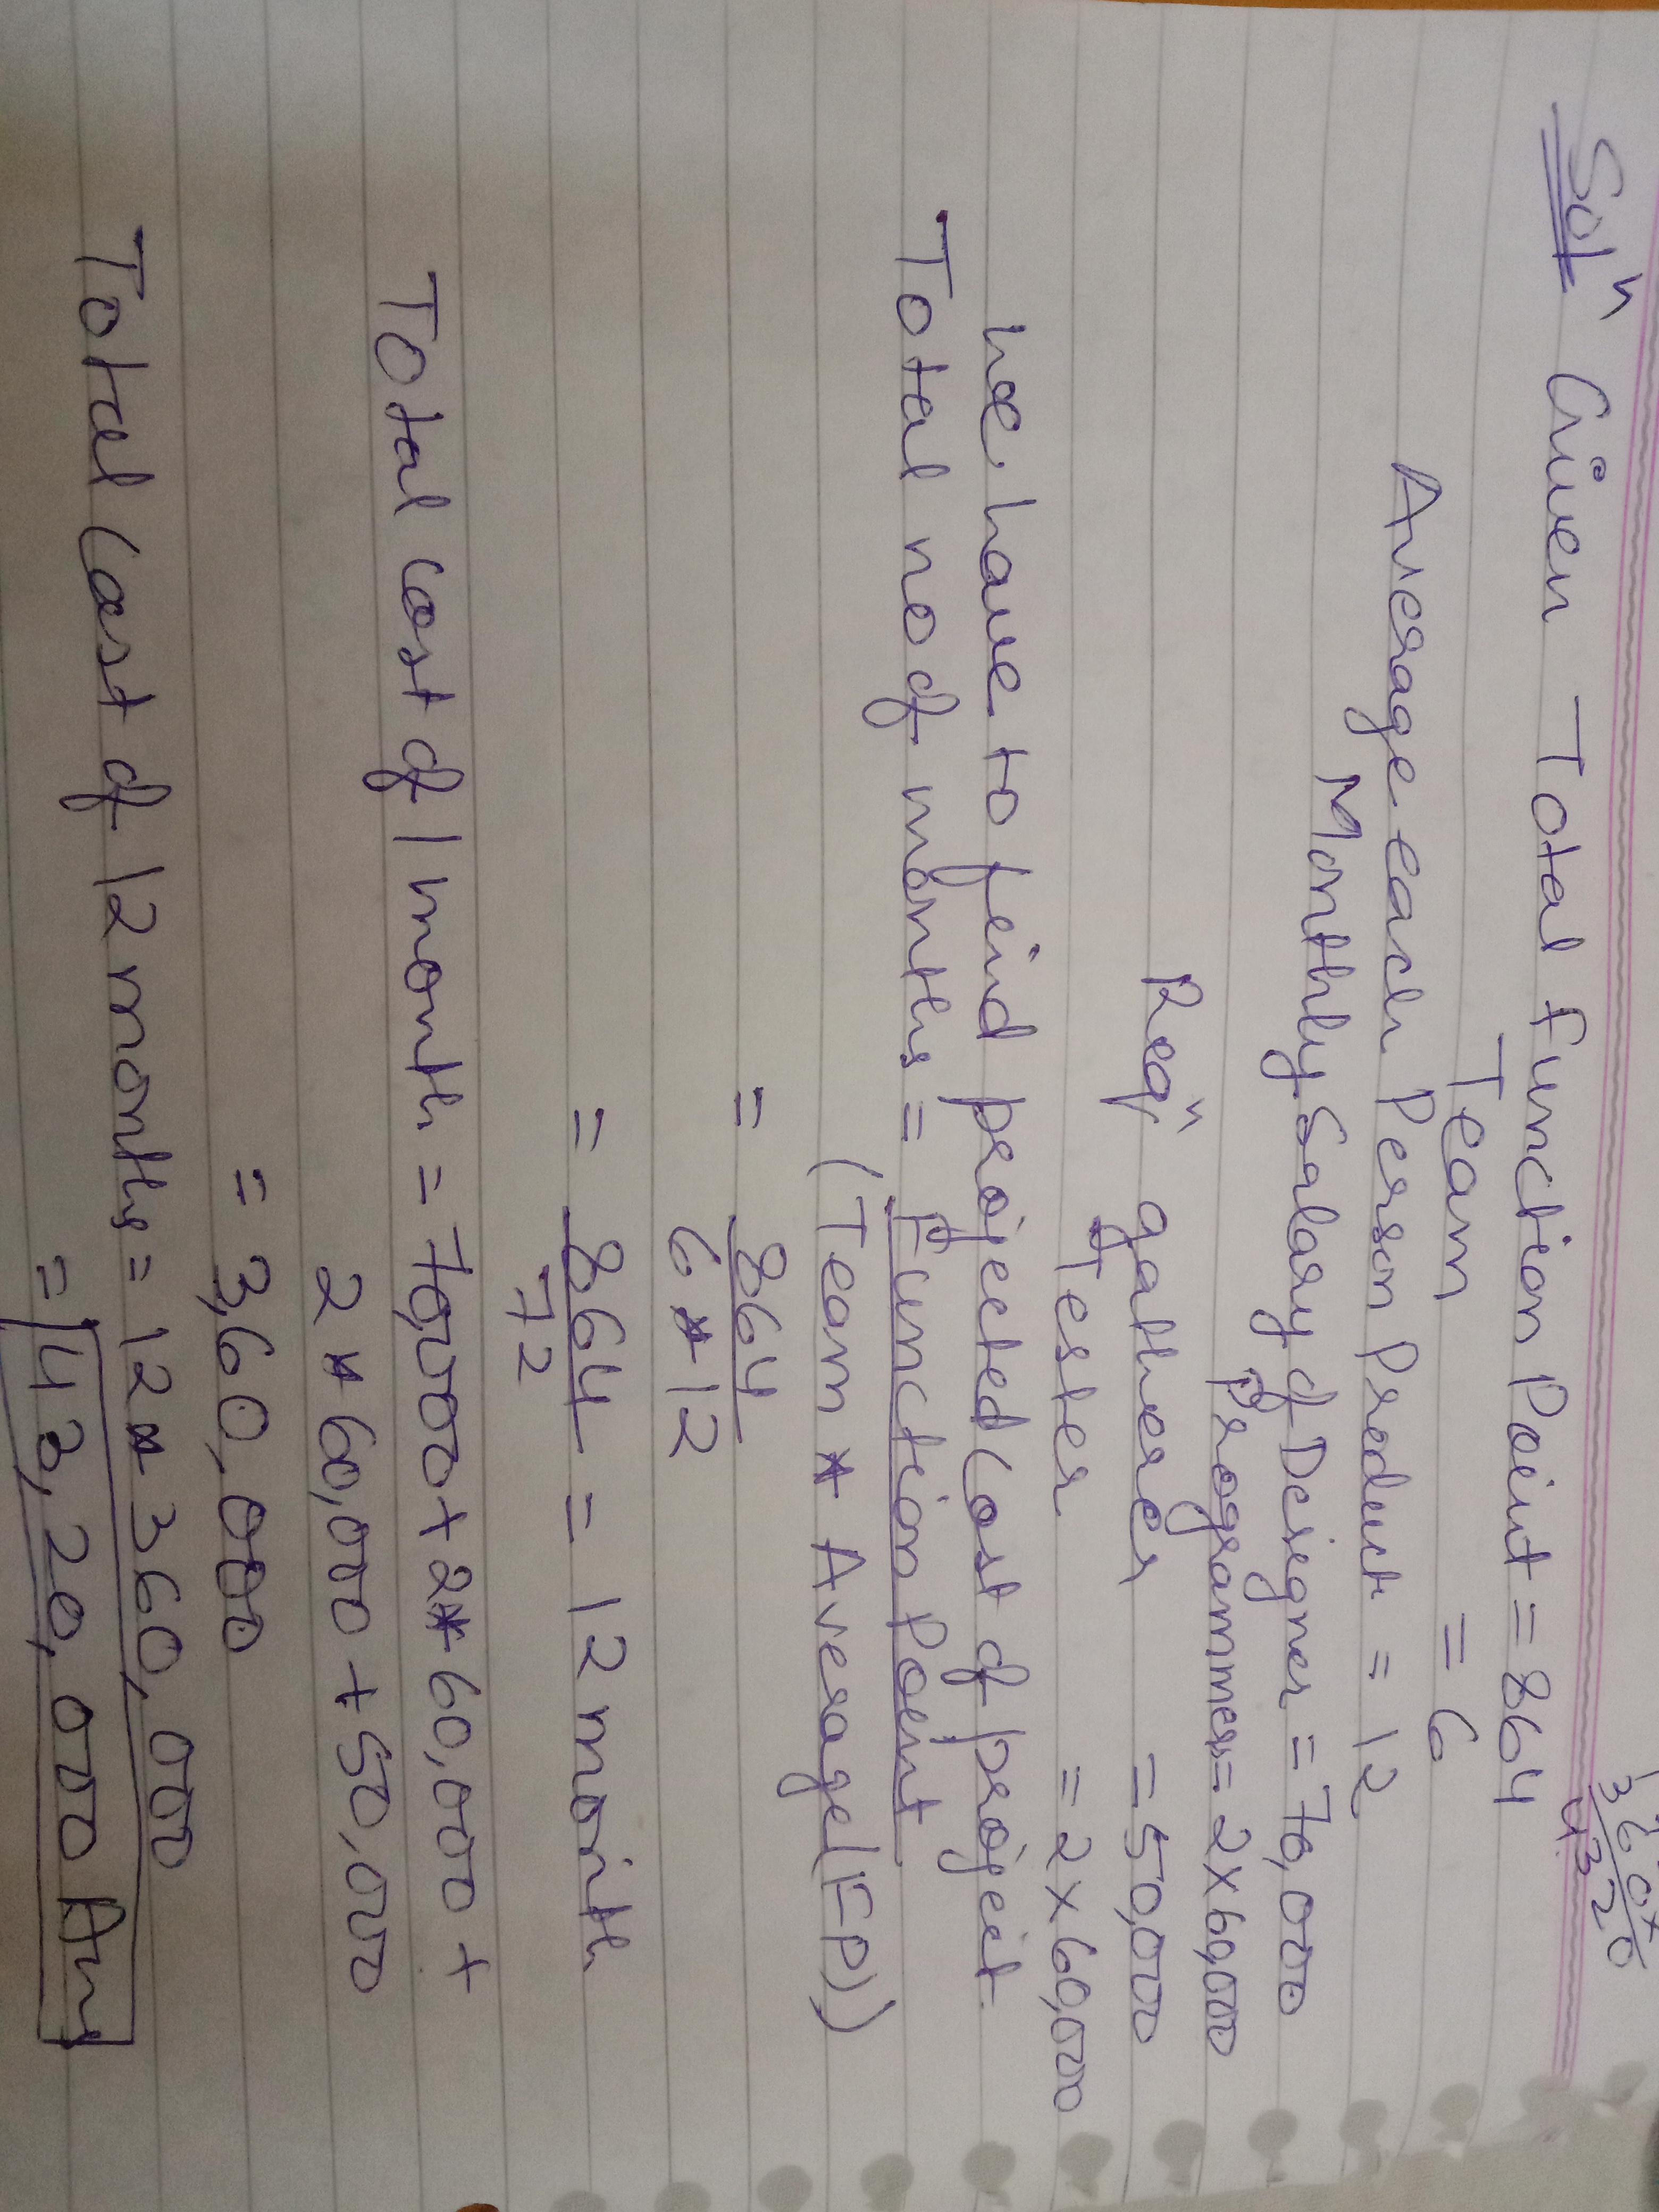 1
360×
4320
Solⁿ Given Total function Point = 864
Team = 6
Average each Person Product = 12
Monthly Salary of Designer = 70,000
Programmer = 2×60,000
Reqⁿ gatherer = 50,000
Tester = 2×60,000
We have to find projected Cost of project.
Total no of months = Function Point
(Team * Average(FP))
= 864
6*12
= 864 = 12 month
72
Total cost of 1 month = 70,000+2*60,000+
2*60,000+50,000
= 3,60,000
Total Cost of 12 months = 12*360,000
= 43,20,000 Ans